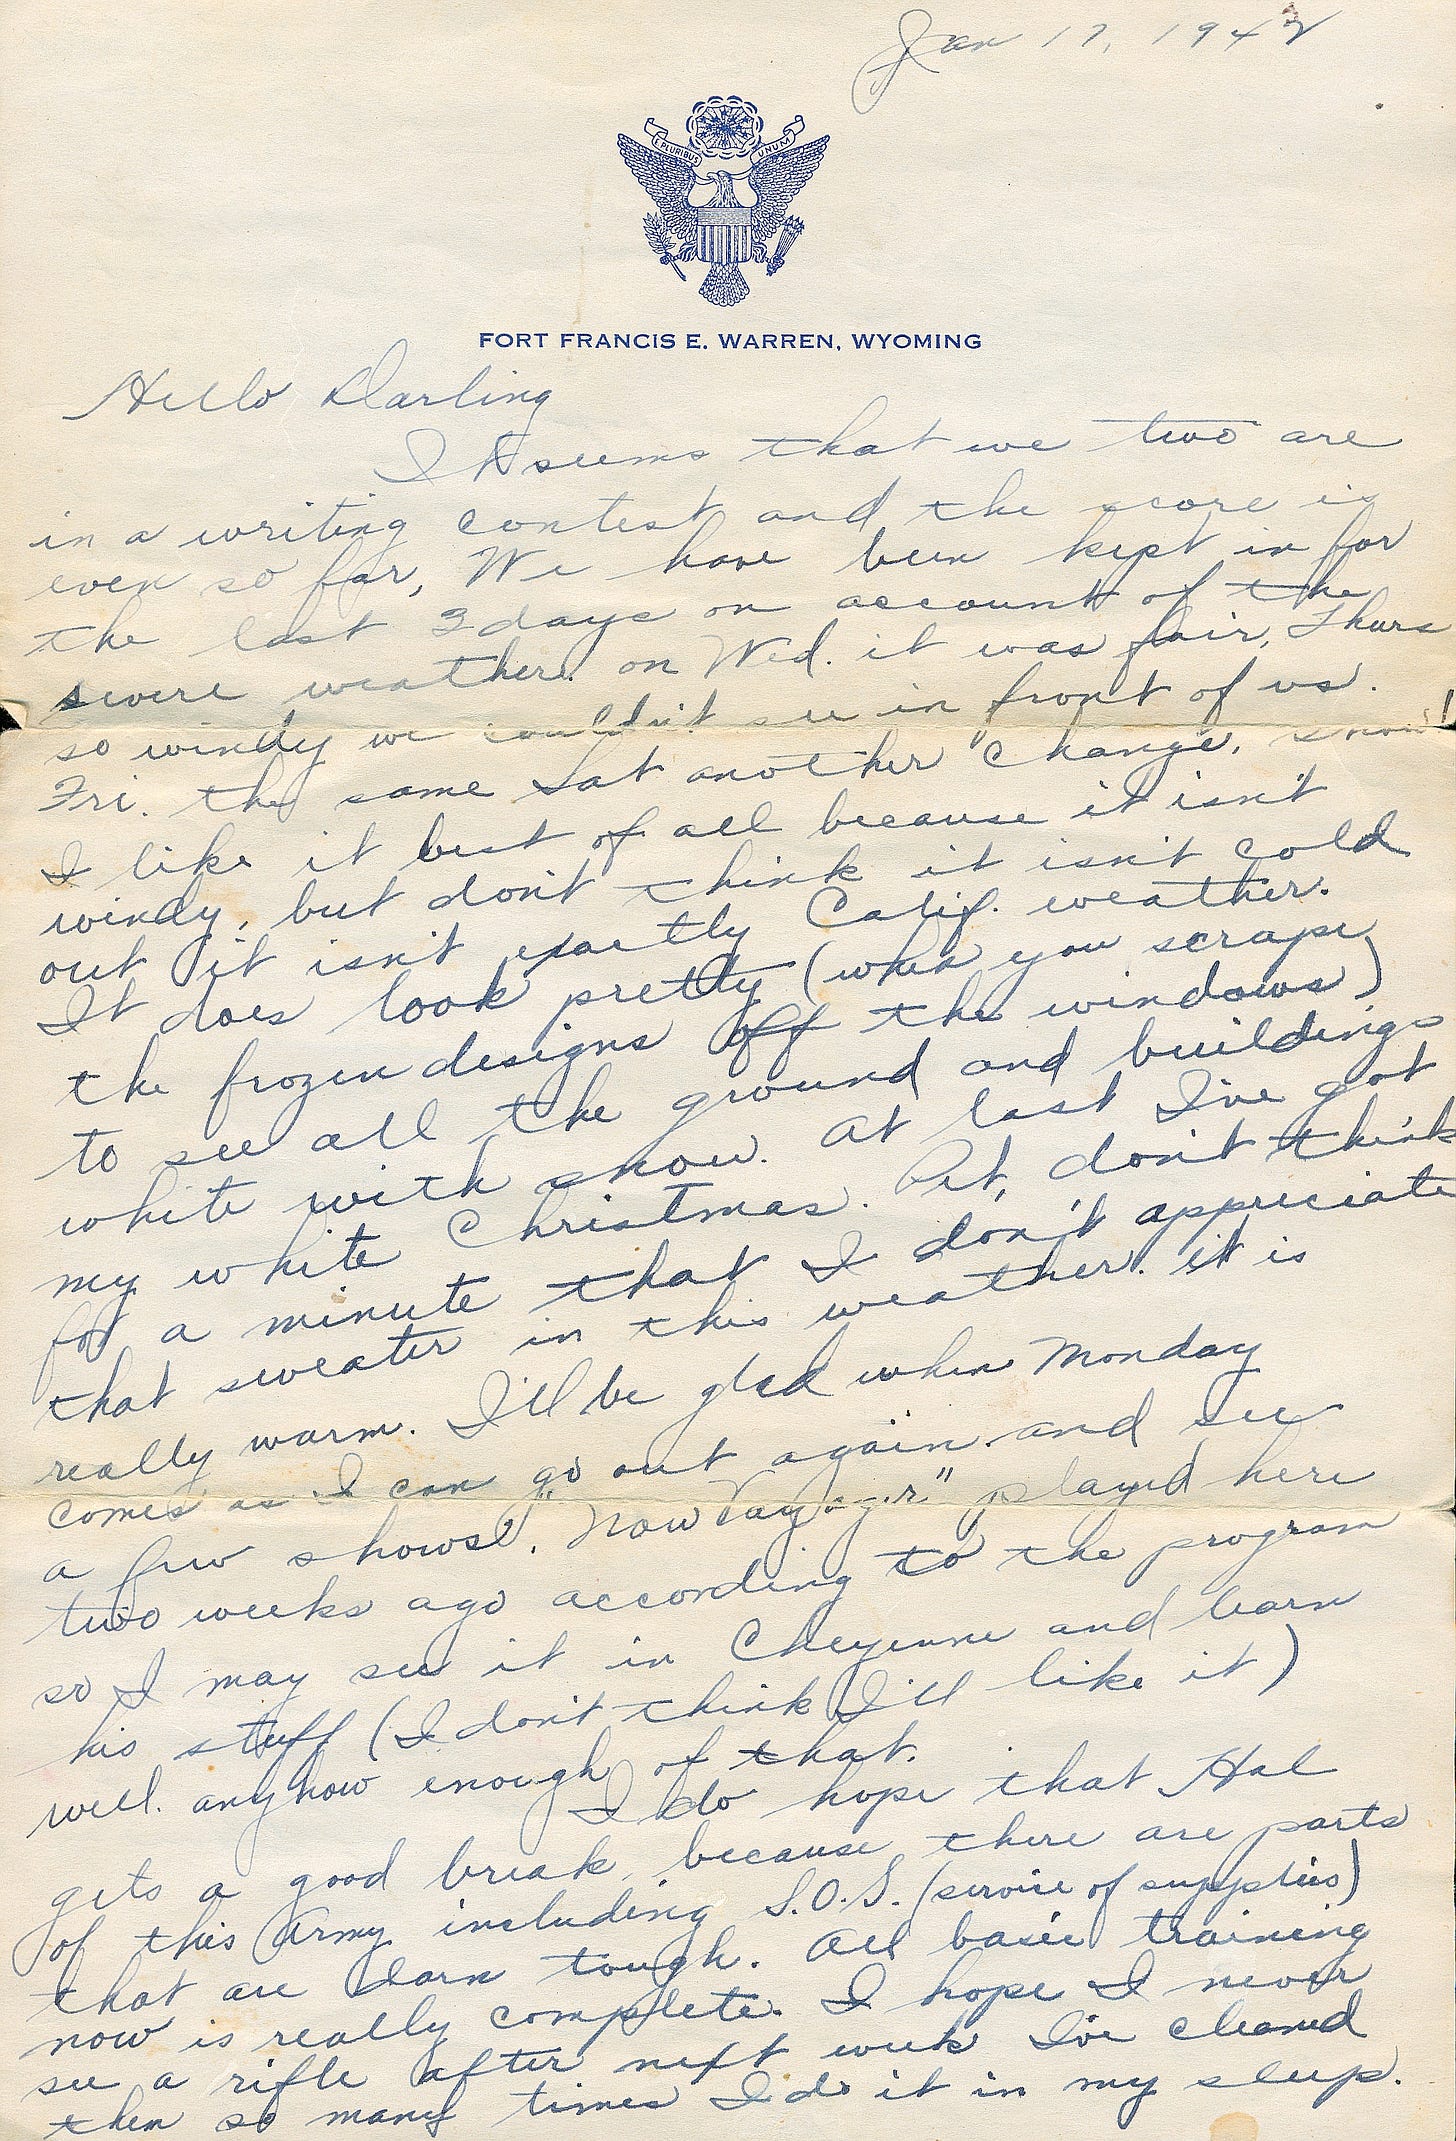 Jan 17, 1942
PLURIBUS UNUM
FORT FRANCIS E. WARREN, WYOMING
Hello Darling
It seems that we two are
in a writing contest and the score is
even so far, We have been kept in for
the last 3 days on account of the
severe weather. on Wed. it was fair, Thurs
so windy we couldn't see in front of us.
Fri. the same Sat another change, snow!
I like it best of all because it isn't
windy, but don't think it isn't cold
out it isn't exactly Calif. weather.
It does look pretty (when you scrape
the frozen designs off the windows)
to see all the ground and buildings
white with snow. At last I've got
my white Christmas. Pet, don't think
for a minute that I don't appreciate
that sweater in this weather. it is
really warm. I'll be glad when Monday
comes as I can go out again and see
a few shows. "Now Voyager" played here
two weeks ago according to the program
so I may see it in Cheyenne and learn
his stuff (I don't think I'll like it)
well. anyhow enough of that.
I do hope that Hal
gets a good break, because there are parts
of this Army including S.O.S. (service of supplies)
that are darn tough. All basic training
now is really complete. I hope I never
see a rifle after next week I've cleaned
them so many times I do it in my sleep.